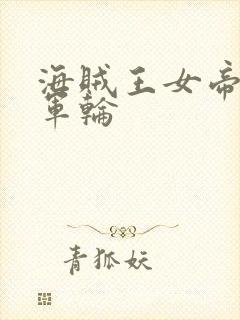 海賊王女帝
軍輪
青狐妖